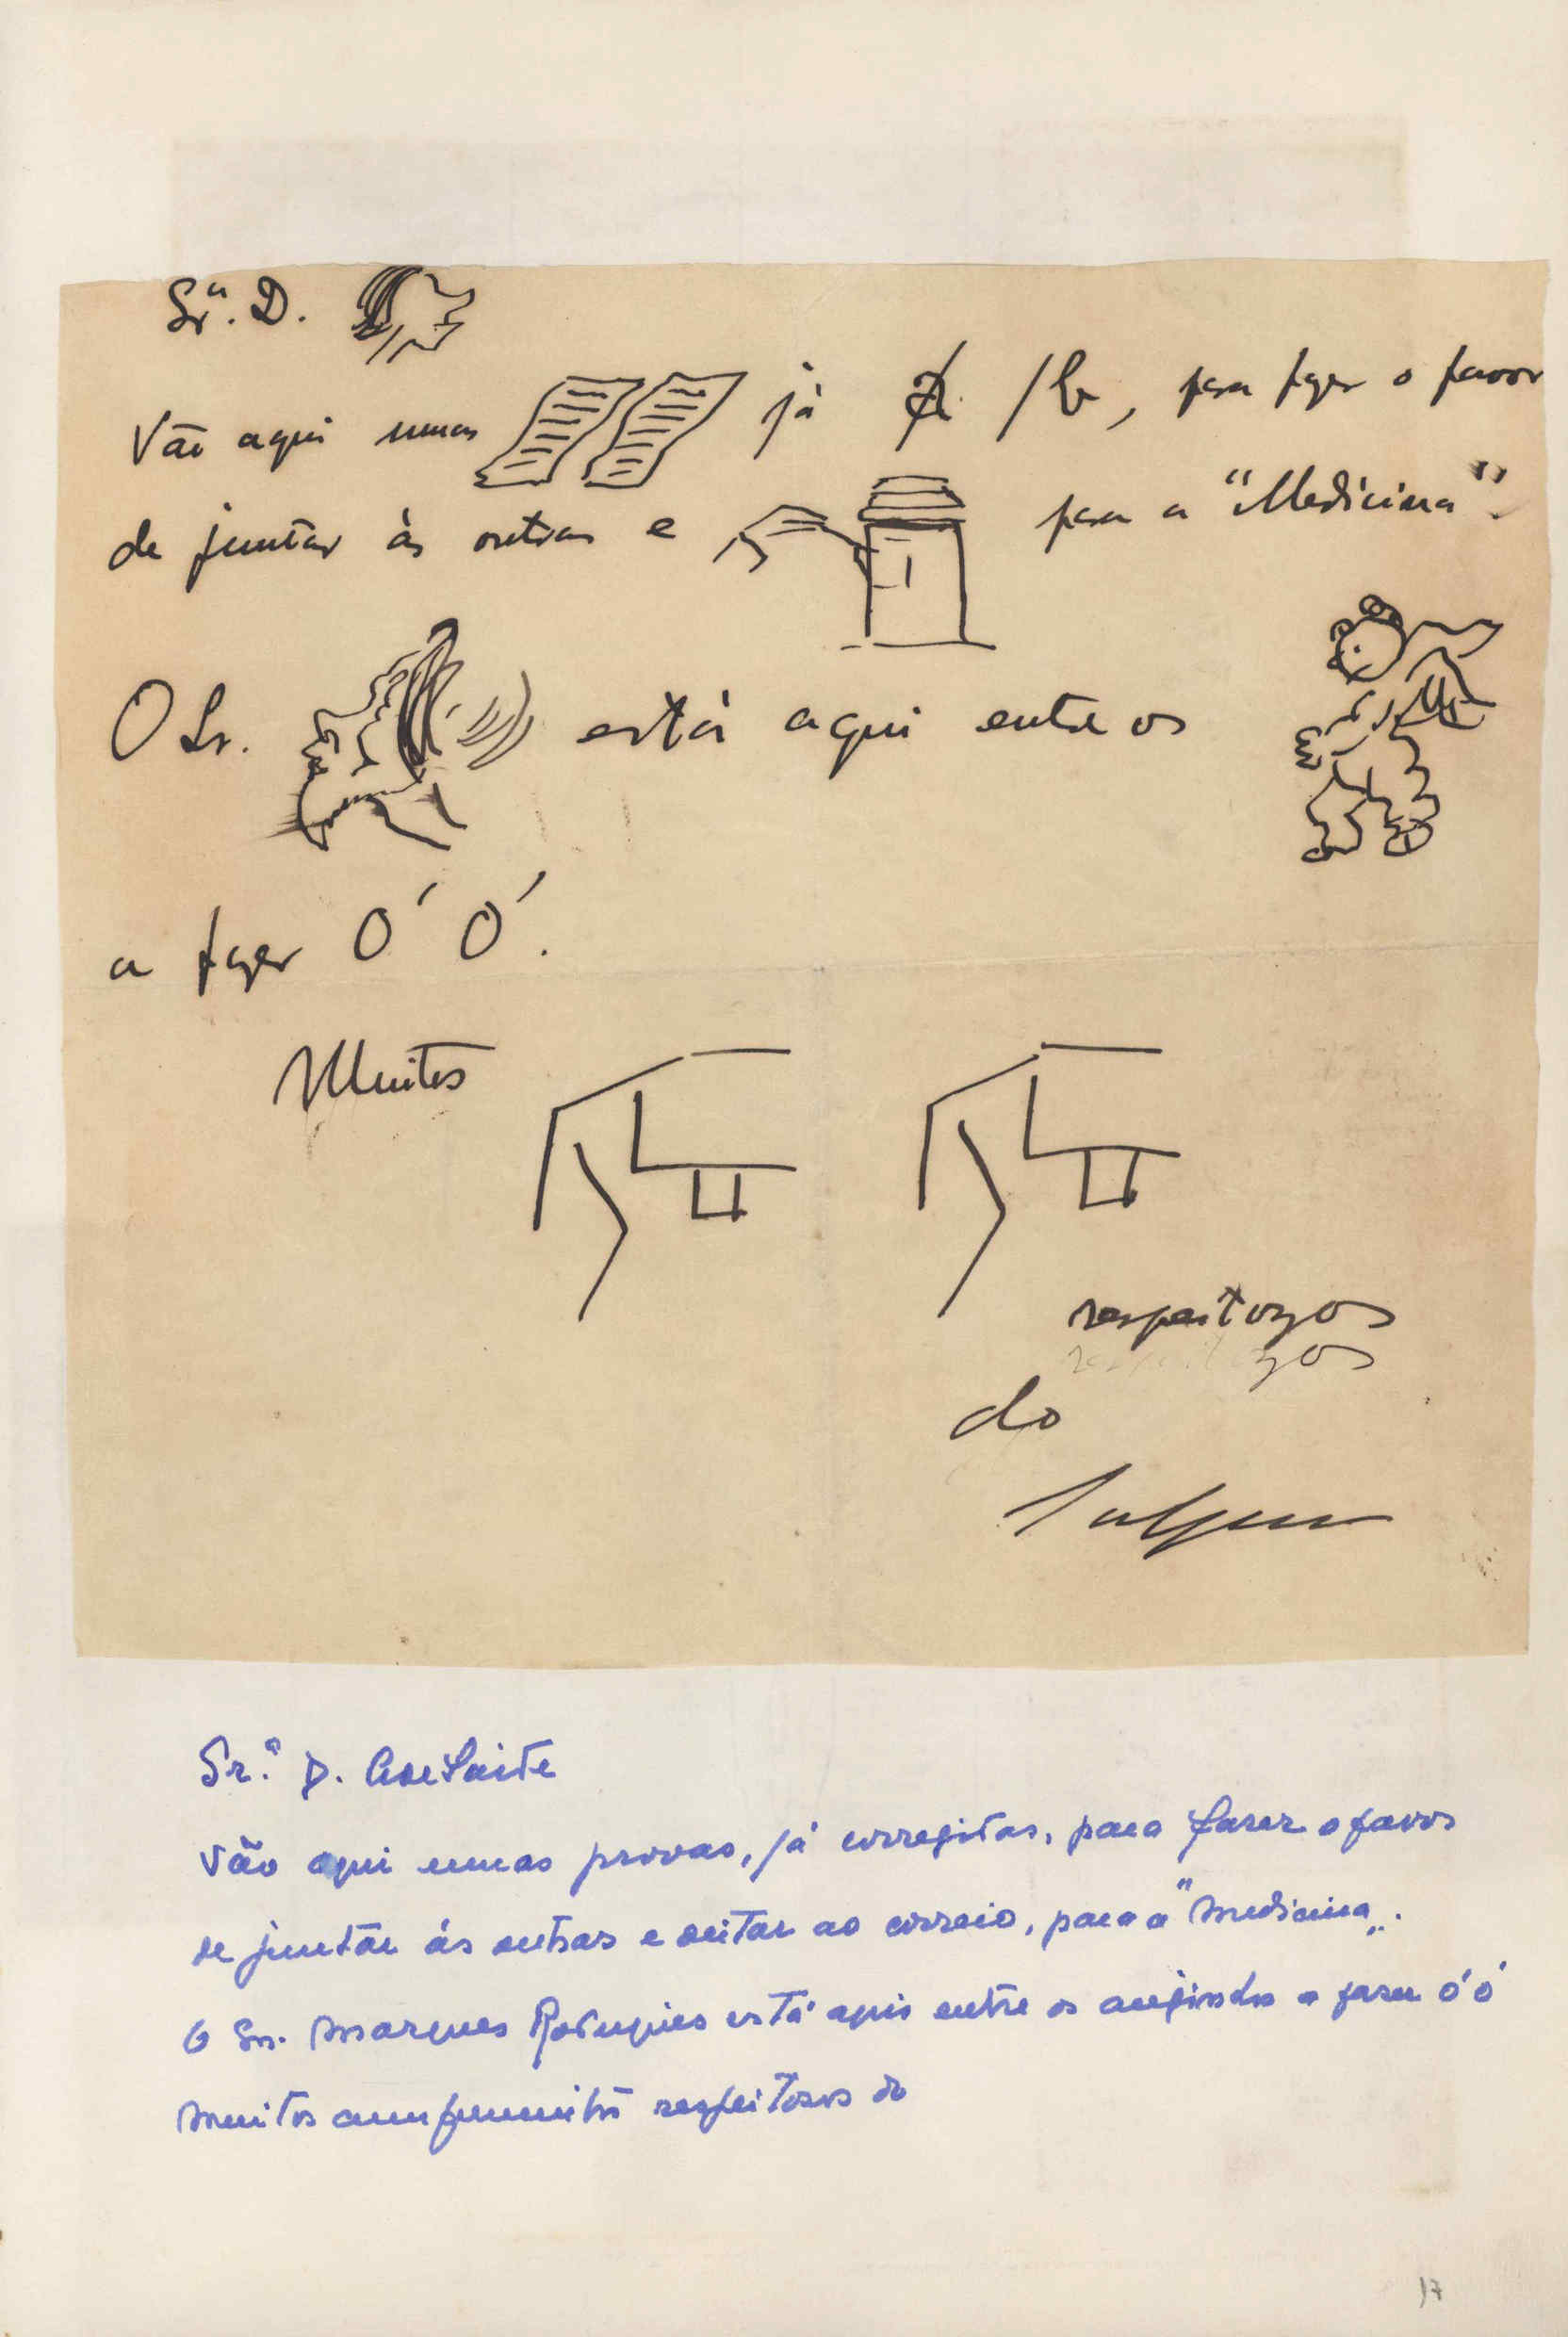 Sr.ª D.
Vão aqui umas já a /b, para fazer o favor
de juntar às outras e para a "Medicina".
O Sr. está aqui entre os
a fazer Ó Ó.
Muitos
respeitozos
do
Sr.ª D. Adelaide
Vão aqui umas provas, já corregidas, para fazer o favor
de juntar ás outras e deitar ao correio, para a "Medicina".
O Snr. Marques Rodrigues está aqui entre os anjinhos a fazer ó ó
Muitos cumprimentos respeitosos do
17